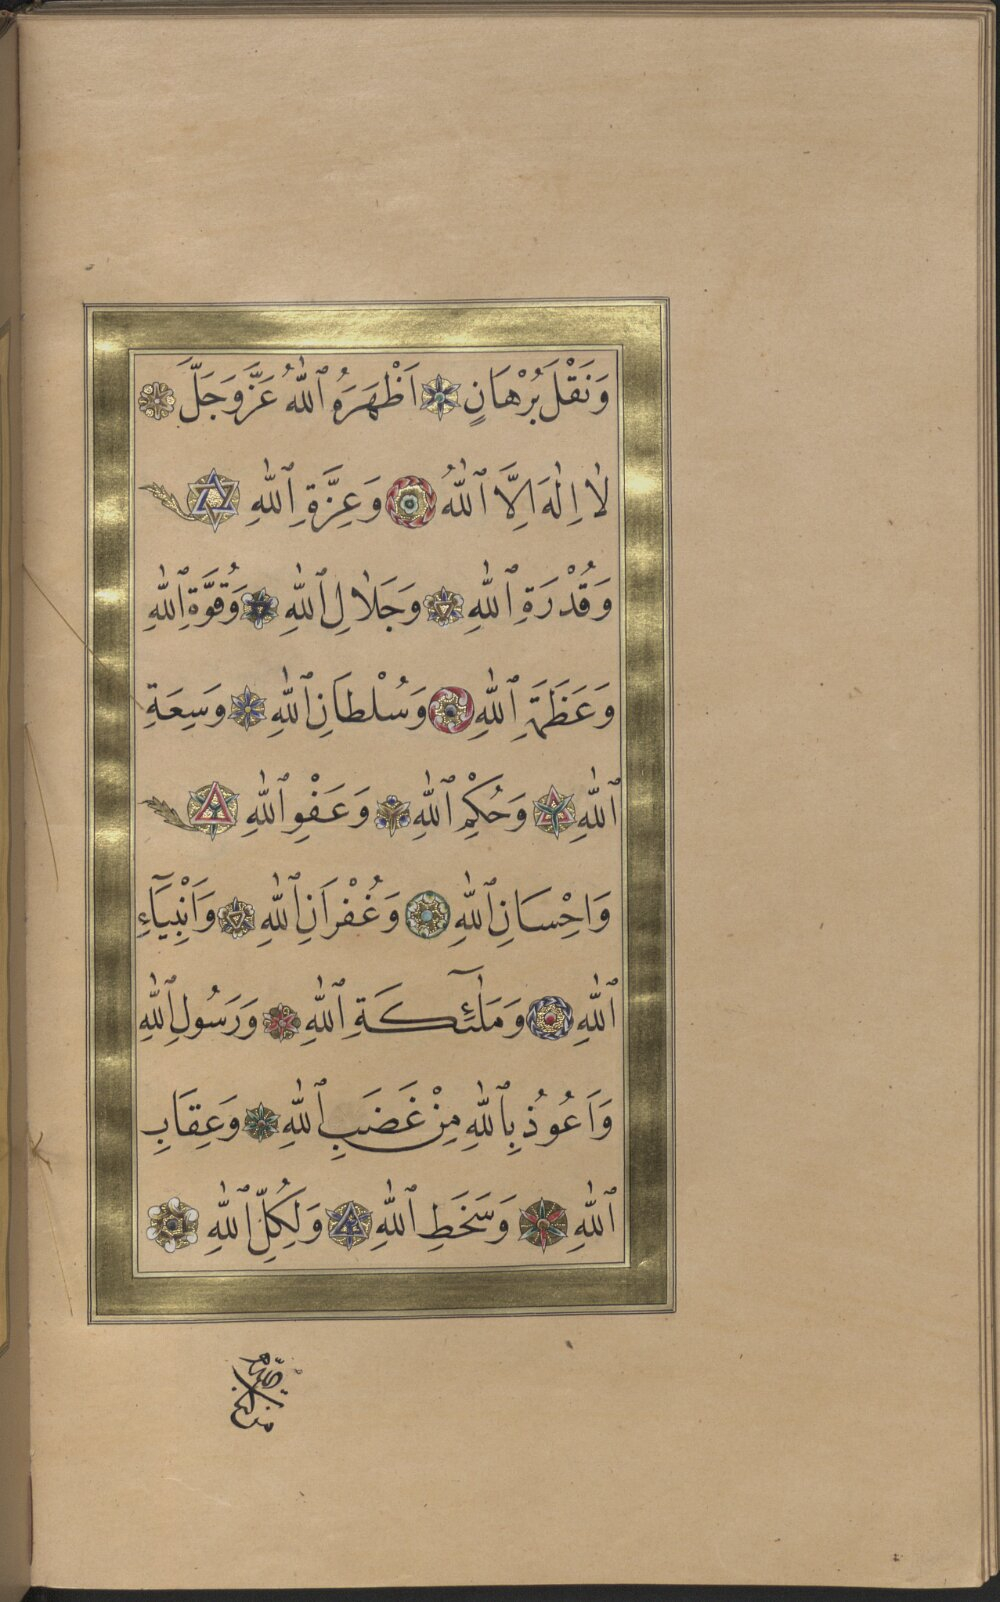 وَنَقْلَ بُرْهَانٍ اَظْهَرَهُ ٱللّٰهُ عَزَّ وَجَلَّ
لٰا اِلٰهَ اِلَّا ٱللّٰهُ وَعِزَّةِ ٱللّٰهِ
وَقُدْرَةِ ٱللّٰهِ وَجَلٰالِ ٱللّٰهِ وَقُوَّةِ ٱللّٰهِ
وَعَظَمَةِ ٱللّٰهِ وَسُلْطَانِ ٱللّٰهِ وَسِعَةِ
ٱللّٰهِ وَحُكْمِ ٱللّٰهِ وَعَفْوِ ٱللّٰهِ
وَاِحْسَانِ ٱللّٰهِ وَغُفْرَانِ ٱللّٰهِ وَاَنْبِيَآءِ
ٱللّٰهِ وَمَلٰٓئِكَةِ ٱللّٰهِ وَرَسُولِ ٱللّٰهِ
وَاَعُوذُ بِٱللّٰهِ مِنْ غَضَبِ ٱللّٰهِ وَعِقَابِ
ٱللّٰهِ وَسَخَطِ ٱللّٰهِ وَلِكُلِّ ٱللّٰهِ